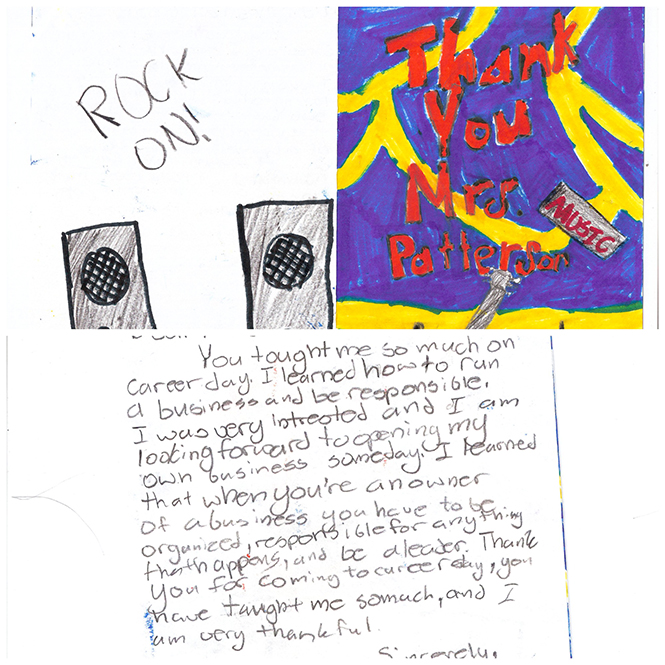 ROCK
ON!
Thank
You
Mrs.
Patterson
MUSIC
You tought me so much on
career day. I learned how to run
a business and be responsible.
I was very intrested and I am
looking forward to opening my
own business someday. I learned
that when you're an owner
of a business you have to be
organized, responsible for anything
that happens, and be a leader. Thank
you for coming to career day, you
have taught me so much, and I
am very thankful.
Sincerely,